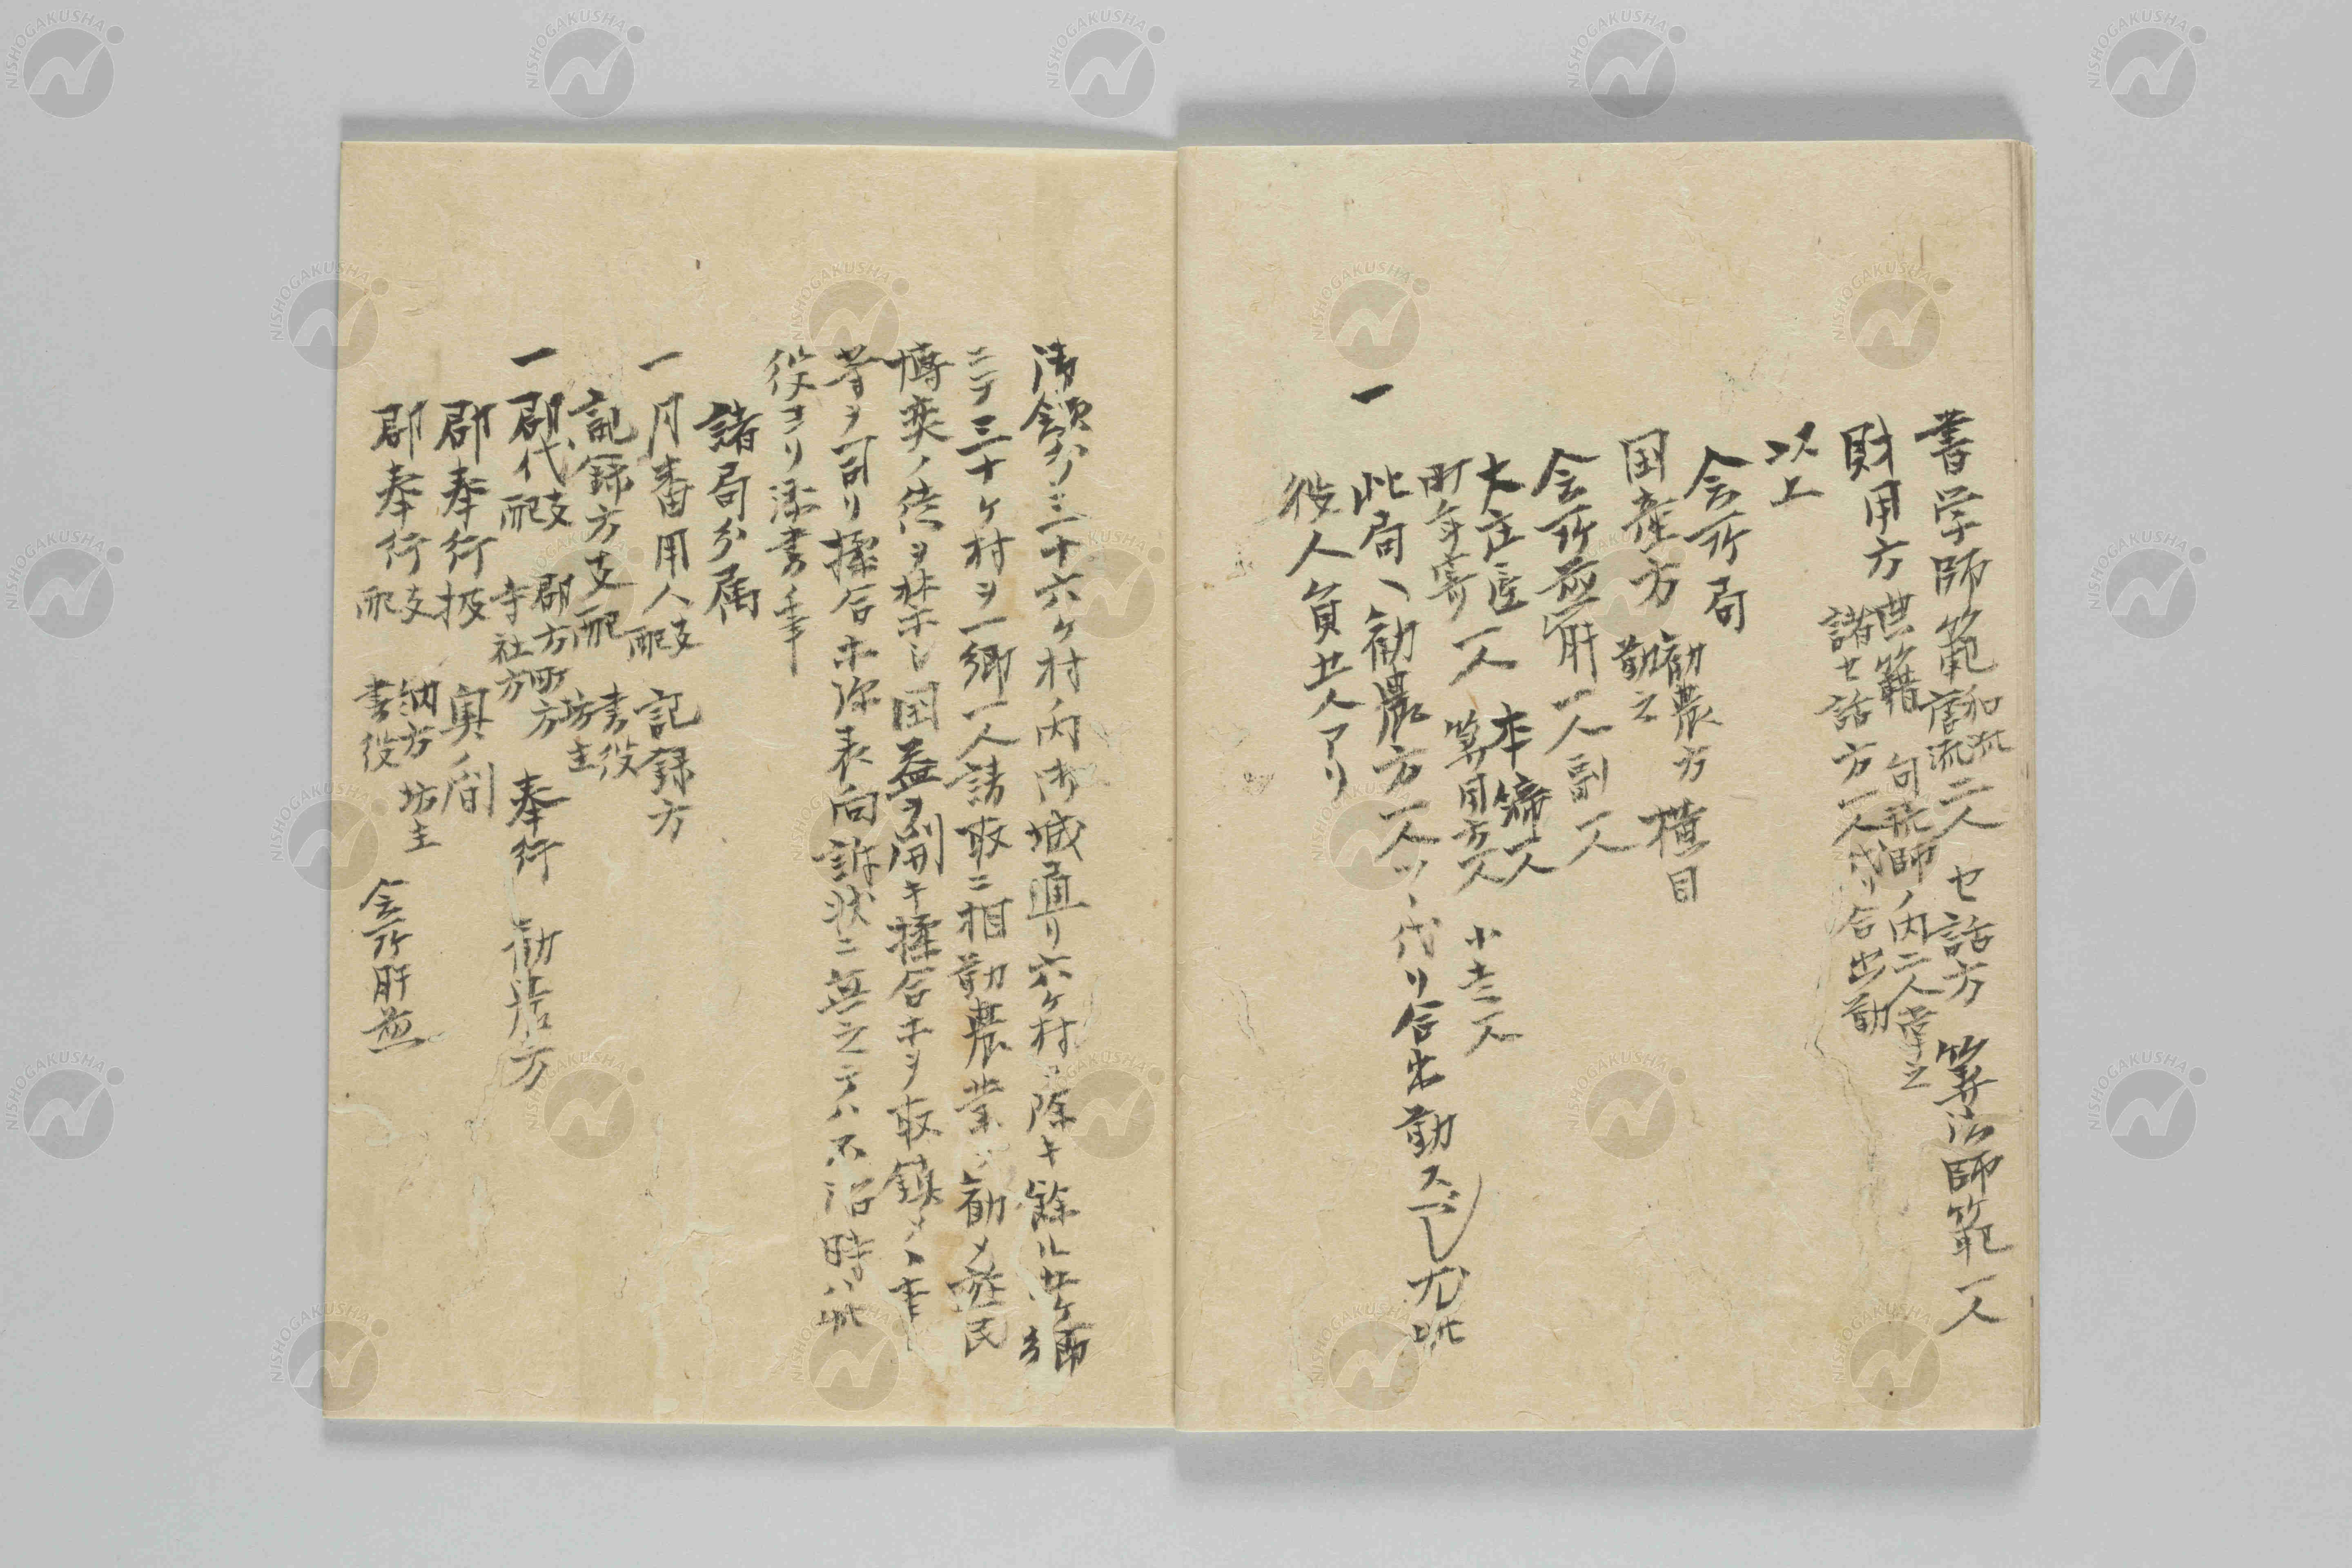 書学師範 和流 唐流 二人 セ話方 算法師範一人
財用方 典籍 句読師ノ内二人掌之
諸セ話方一人代リ合出勤
以上
会所局
国産方 勧農方 勤之 横目
会所並肝一人副一人
大庄屋 本締一人
町年寄 一人 算用方一人 小走一人
一 此局ヘ勧農方一人ツヽ代リ合出勤スベし尤此
役人員廿人アリ
御領分三十六ケ村ノ内御城廻リ六ケ村ヲ除キ餘ル卅ケ郷
ニテ三十ケ村ヲ一郷一人請取ニ相勤農業ヲ勧メ遊民
博奕ノ徒ヲ禁示し国益ヲ開キ揉合ホヲ取鎮メヽ事
等ヲ司リ揉合ホ深表向訴状ニ無之テハ不治時ハ此
役ヨリ添書ノ事
諸局分属
一 月番用人支配 記録方
記録方支配 書役 坊主
一 郡代支配 郡方 町方 寺社方 奉行 勧農方
郡奉行扱 奥ノ間
郡奉行支配 納方 坊主 書役 会所肝並
NISHOGAKUSHA